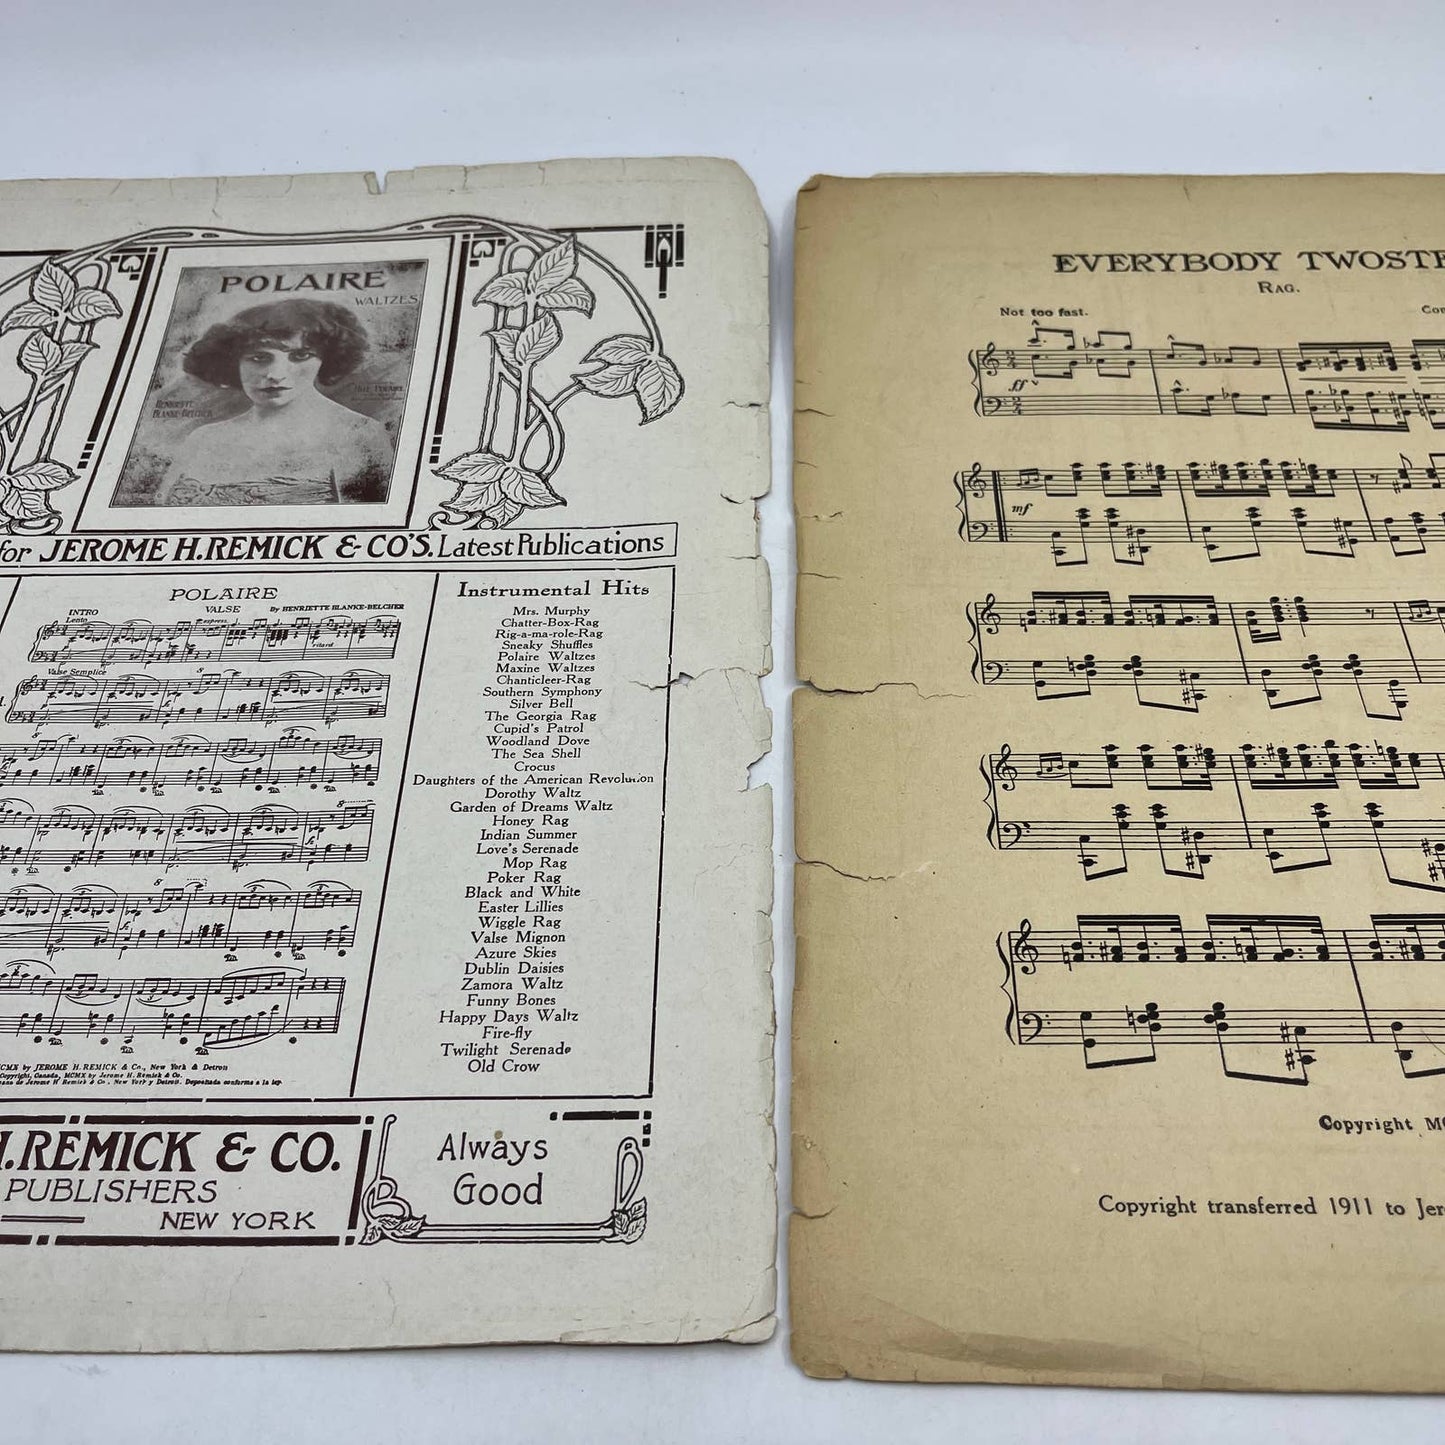 POLAIRE
WALTZES
HENRIETTE
BLANKE-BELCHER
MLLE. POLAIRE
for JEROME H. REMICK & CO'S. Latest Publications
POLAIRE
VALSE
By HENRIETTE BLANKE-BELCHER
INTRO
Lento
express.
ritard
Valse Semplice
Instrumental Hits
Mrs. Murphy
Chatter-Box-Rag
Rig-a-ma-role-Rag
Sneaky Shuffles
Polaire Waltzes
Maxine Waltzes
Chanticleer-Rag
Southern Symphony
Silver Bell
The Georgia Rag
Cupid's Patrol
Woodland Dove
The Sea Shell
Crocus
Daughters of the American Revolution
Dorothy Waltz
Garden of Dreams Waltz
Honey Rag
Indian Summer
Love's Serenade
Mop Rag
Poker Rag
Black and White
Easter Lillies
Wiggle Rag
Valse Mignon
Azure Skies
Dublin Daisies
Zamora Waltz
Funny Bones
Happy Days Waltz
Fire-fly
Twilight Serenade
Old Crow
MCMX by JEROME H. REMICK & Co., New York & Detroit
Copyright, Canada, MCMX by Jerome H. Remick & Co.
de Jerome H. Remick & Co., New York y Detroit. Depositada conforme a la ley
H. REMICK & CO.
PUBLISHERS
NEW YORK
Always
Good
EVERYBODY TWOSTE
RAG.
Not too fast.
Com
ff
mf
Copyright MC
Copyright transferred 1911 to Jer